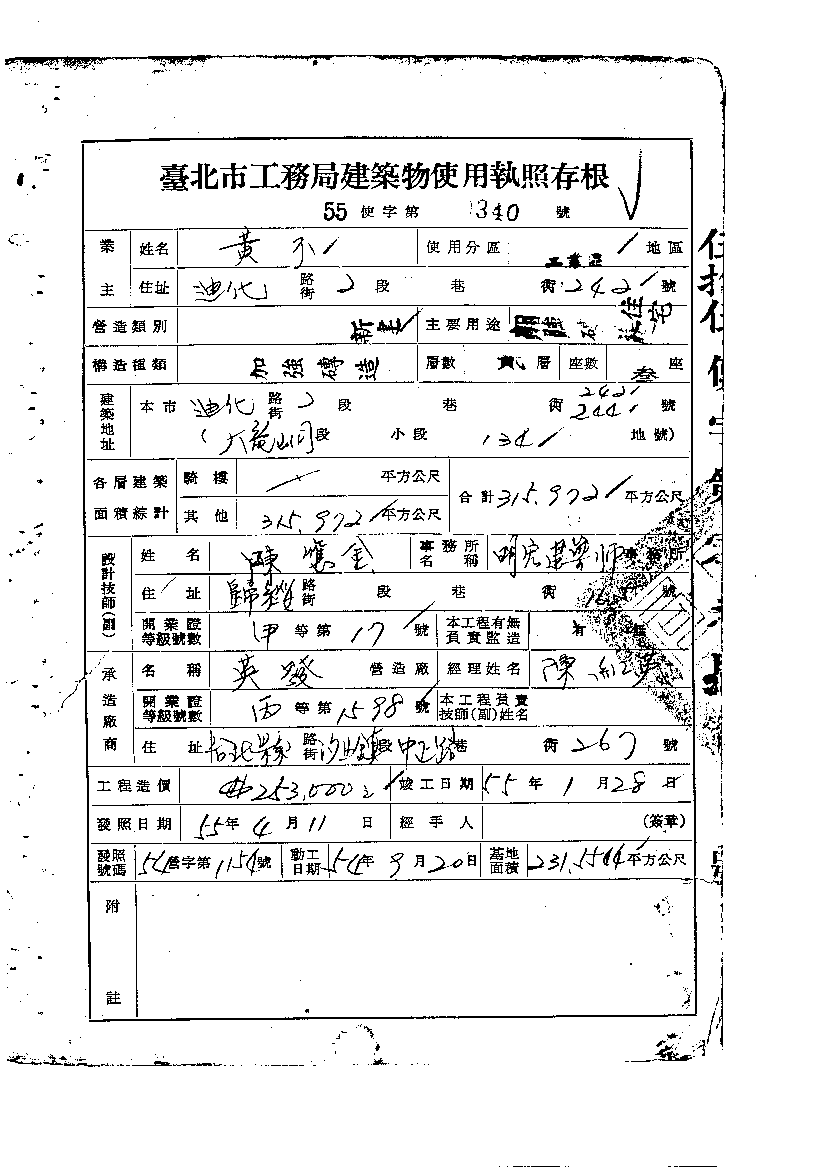 臺北市工務局建築物使用執照存根
55 使字第 340 號
業主 姓名 黃 使用分區 工業區 地區
住址 迪化 路街 2 段 巷 街 242 號
營造類別 新建 主要用途 住宅
構造種類 加強磚造 層數 貳 層 座數 叁 座
建築地址 本市 迪化 路街 2 段 巷 街 242 244 號
(大龍峒段 小段 134 地號)
各層建築面積綜計 騎樓 平方公尺 合計 315.972 平方公尺
其他 315.972 平方公尺
設計技師(副) 姓名 陳應金 事務所名稱 明宏建築師事務所
住址 歸綏 路街 段 巷 街 號
開業證等級號數 甲 等第 17 號 本工程有無負責監造 有
承造廠商 名稱 英發 營造廠 經理姓名 陳
開業證等級號數 丙 等第 1598 號 本工程負責技師(副)姓名
住址 台北縣 路街 汐止鎮 段 中正路 巷 街 267 號
工程造價 253,000 竣工日期 55 年 1 月 28 日
發照日期 55 年 4 月 11 日 經手人 (簽章)
發照號碼 54 營字第 1154 號 動工日期 54 年 9 月 20 日 基地面積 231.5544 平方公尺
附註